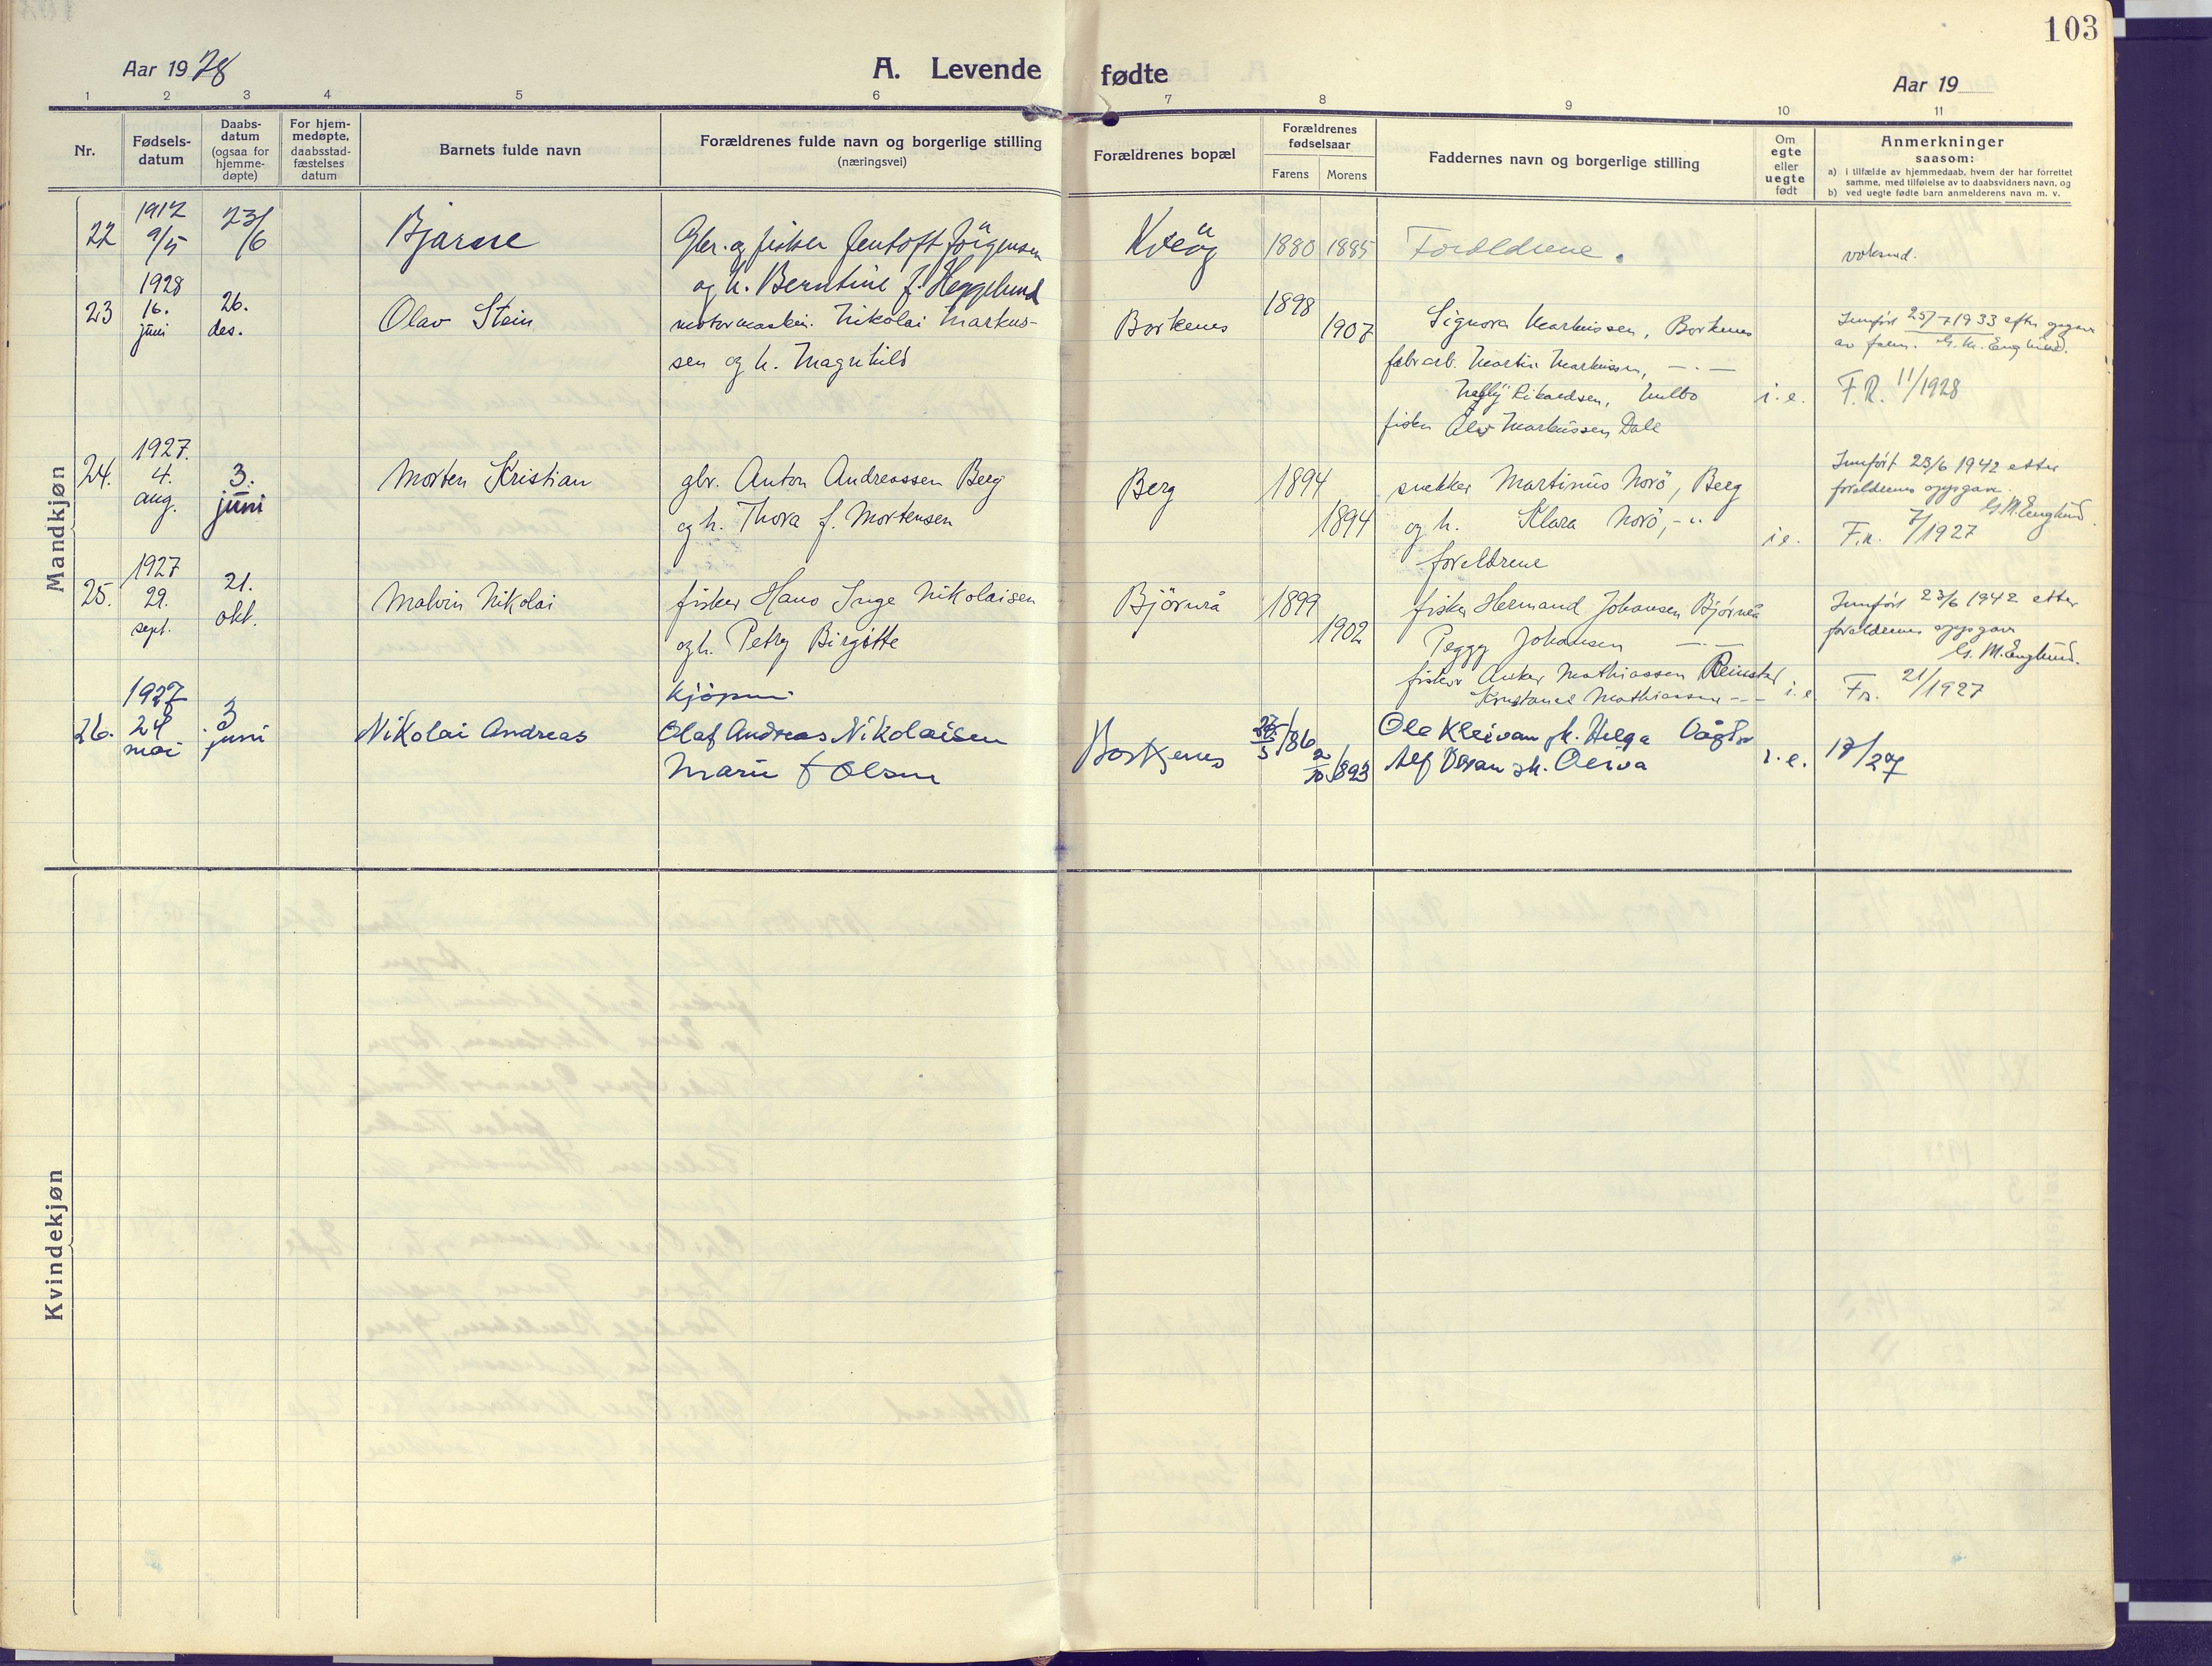 103
Aar 1928
A. Levende fødte
Aar 19
1 2 3 4 5 6 7 8 9 10 11
Nr.
Fødsels-
datum
Daabs-
datum
(ogsaa for
hjemme-
døpte)
For hjem-
medøpte,
daabsstad-
fæstelses
datum
Barnets fulde navn
Forældrenes fulde navn og borgerlige stilling
(næringsvei)
Forældrenes bopæl
Forældrenes
fødselsaar
Farens
Morens
Faddernes navn og borgerlige stilling
Om
egte
eller
uegte
født
Anmerkninger
saasom:
a) i tilfælde av hjemmedaab, hvem der har forrettet
samme, med tilføielse av to daabsvidners navn, og
b) ved uegte fødte barn anmelderens navn m. v.
Mandkjøn
22 1912 9/5 23/6 Bjarne
Gbr. og fisker Jentoft Jörgensen
og h. Berntine f. Heggelund
Kveög 1880 1885 Foreldrene. voksend.
23 1928 16. juni 26. des. Olav Stein
motormaskin. Nikolai Markus-
sen og h. Magnhild
Borkenes 1898 1907
Signora Markussen, Borkenes
fabr.arb. Martin Markussen, — . —
Rikardsen, Hulbo
fisker Alv Markussen Dale
i.e.
Innført 25/7 1933 efter opgave
av faren. G. M. Englund.
F.R. 11/1928
24. 1927. 4. aug. 3. juni Morten Kristian
gbr. Anton Andreassen Berg
og h. Thora f. Mortensen
Berg 1894 1894
snekker Martinus Norö, Berg
og h. Klara Norö, - "
foreldrene
i.e.
Innført 23/6 1942 etter
foreldrenes oppgave.
G.M.Englund.
F.r. 7/1927
25. 1927 29. sept. 21. okt. Malvin Nikolai
fisker Hans Inge Nikolaisen
og h. Petry Birgitte
Björnrå 1899 1902
fisker Hermand Johansen Bjørnrå
Peggy Johansen — . —
fisker Anker Mathiassen Reinstad
Konstanse Mathiassen — —
i.e.
Innført 23/6 1942 etter
foreldrenes oppgave
G. M. Englund.
Fr. 21/1927
26. 1927 24 mai 3 juni Nikolai Andreas
kjöpm
Olaf Andreas Nikolaisen
Marie f Olsen
Borkenes /86 /893
Ole Kleivan h. Helga
Alf h.
i.e. 17/27
Kvindekjøn